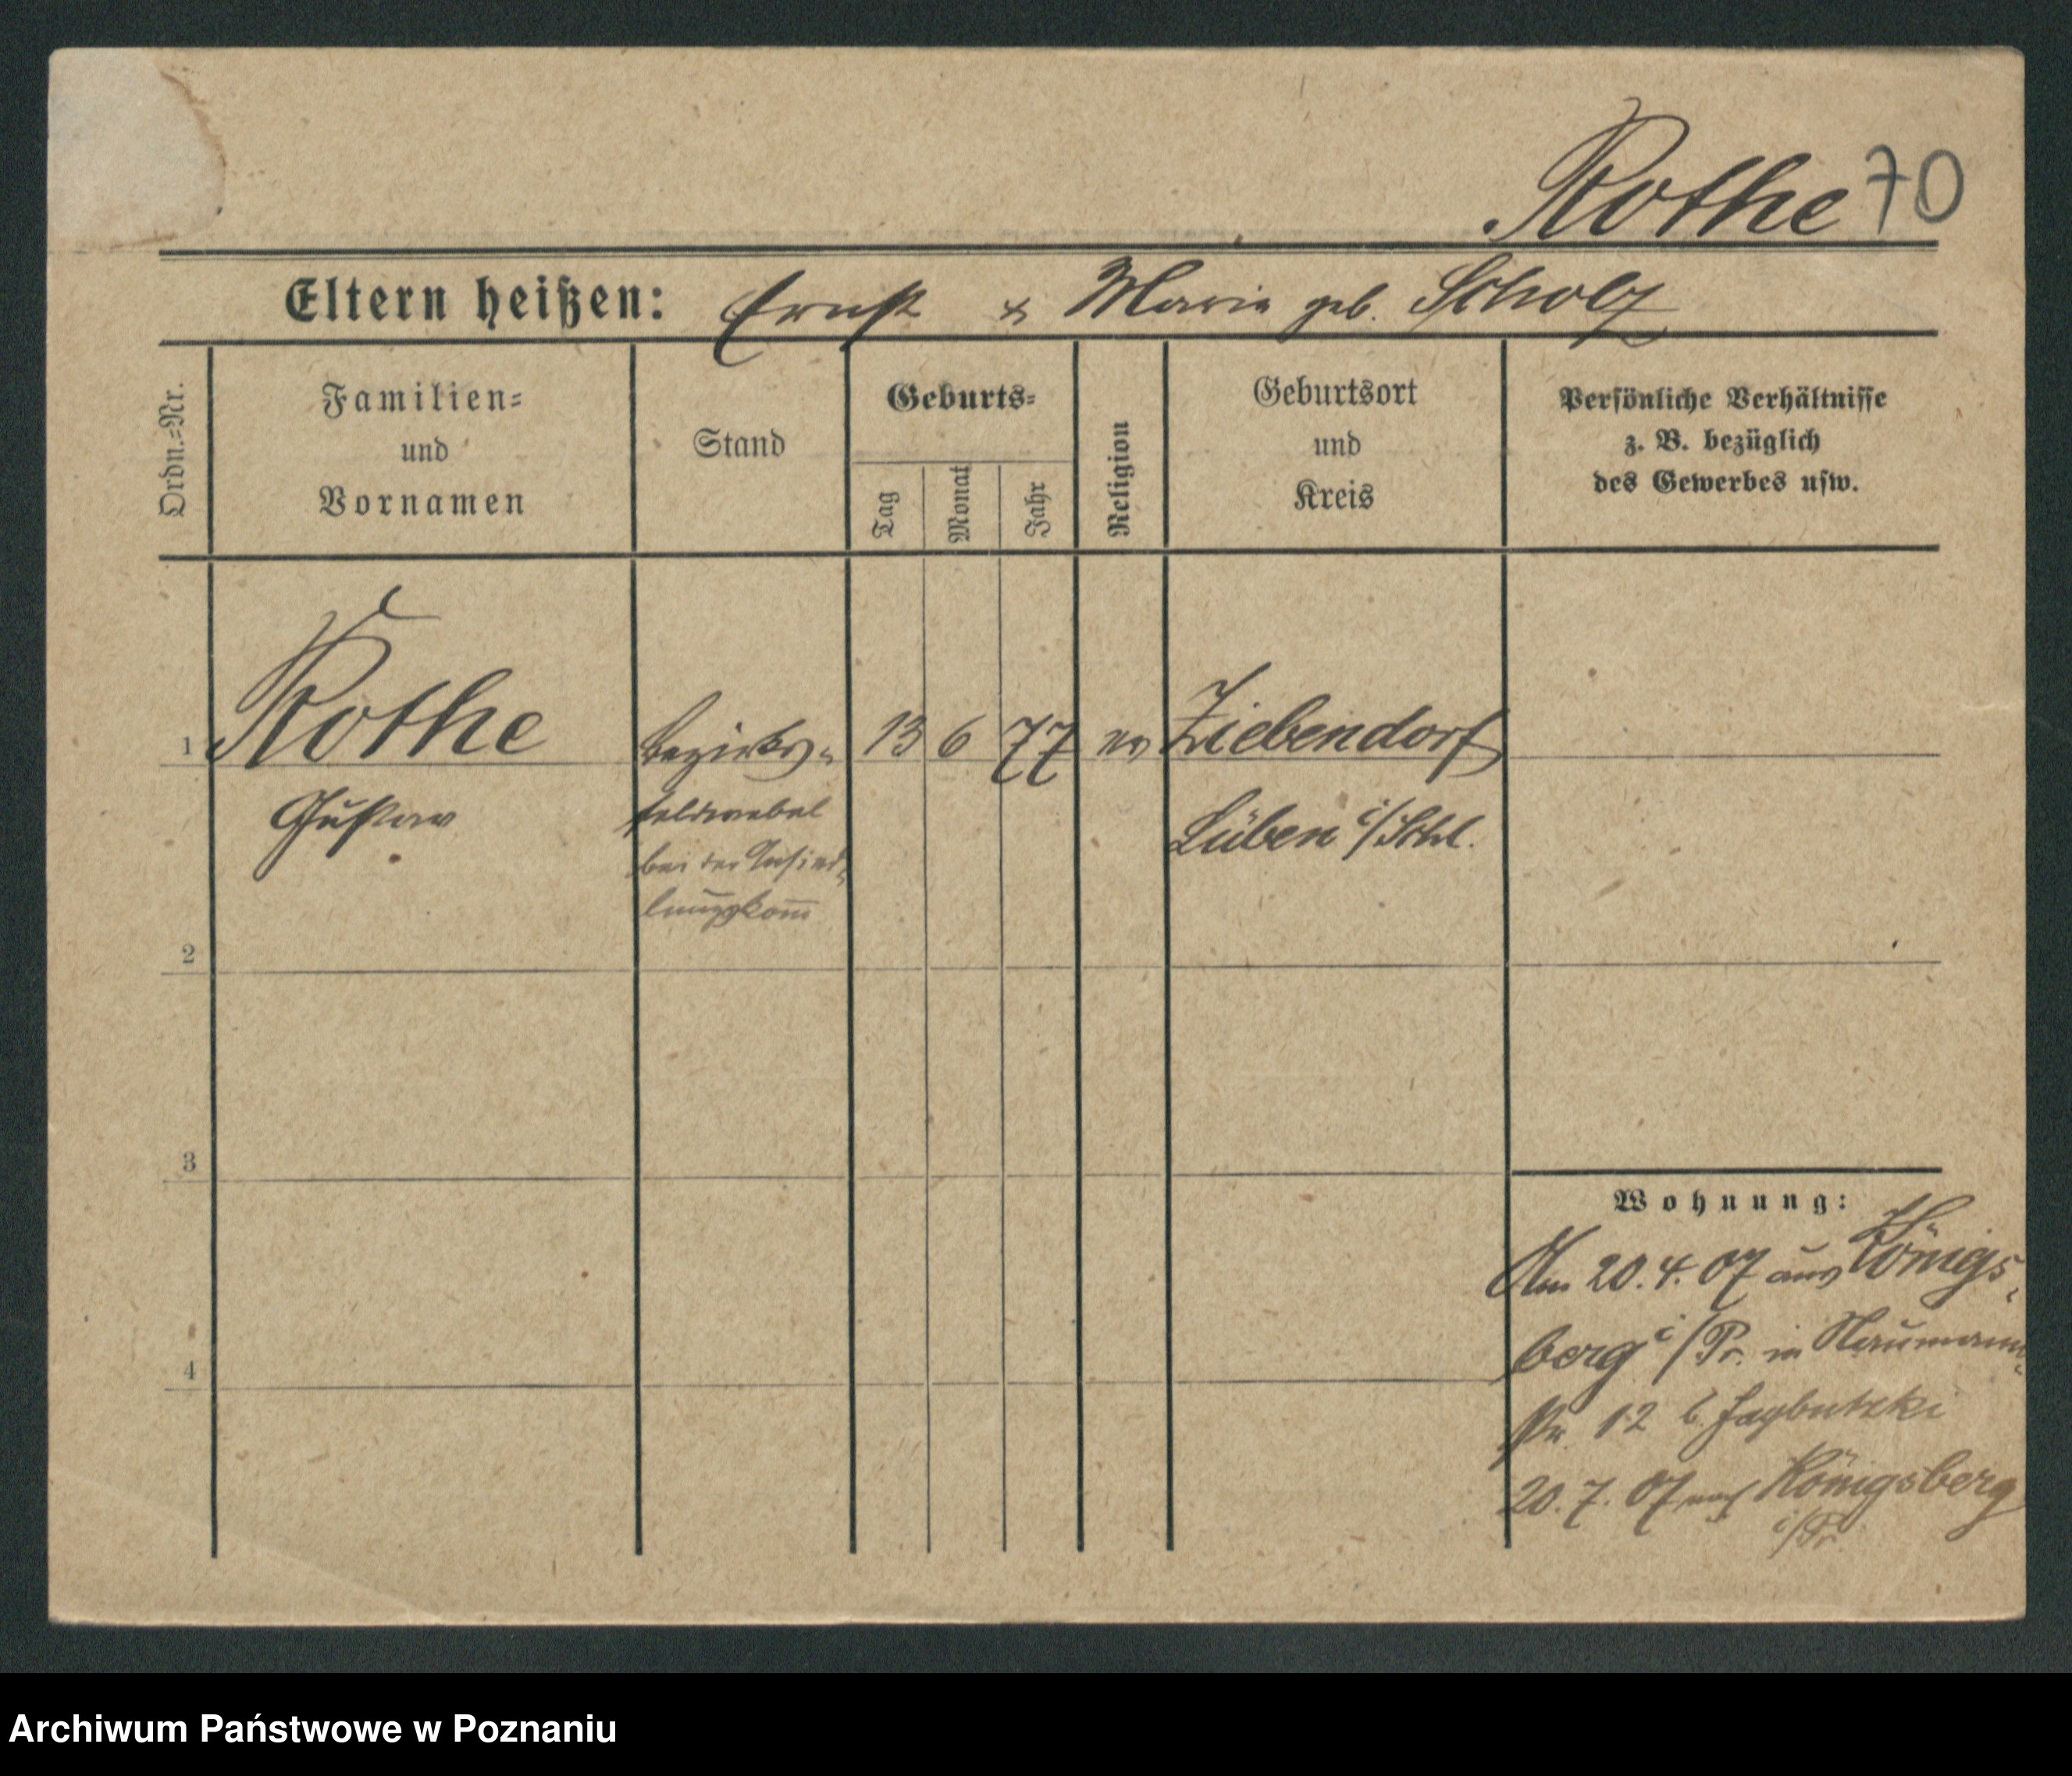 Rothe 70
Eltern heißen: Ernst & Marie geb. Scholz
Ordn.=Nr.
Familien=
und
Vornamen
Stand
Geburts=
Tag
Monat
Jahr
Religion
Geburtsort
und
Kreis
Persönliche Verhältnisse
z. B. bezüglich
des Gewerbes usw.
1 Rothe Bezirks= 13 6 77 ev Ziebendorf
Gustav feldwebel Lüben i/Schl.
bei der Ansied=
lungskom̅
2
3
4
Wohnung:
Am 20.4.07 aus Königs=
berg i/Pr. in Naumann=
str. 12 b.
20.7.07 nach Königsberg
i/Pr
Archiwum Państwowe w Poznaniu